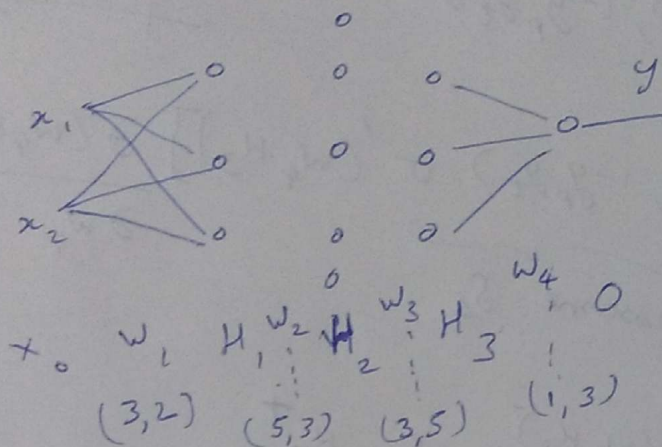 y
x₁
x₂
x₀ W₁ H₁ W₂ H₂ W₃ H₃ W₄ O
(3,2) (5,3) (3,5) (1,3)